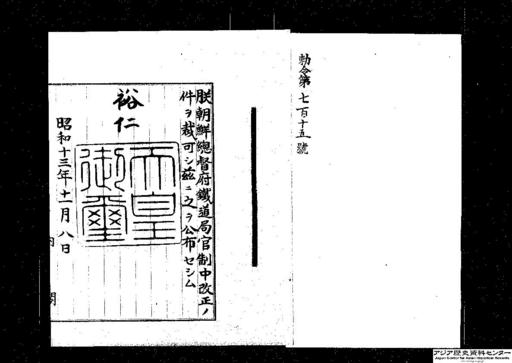 勅令第七百十五號
朕朝鮮總督府鐵道局官制中改正ノ
件ヲ裁可シ茲ニ之ヲ公布セシム
裕仁
天皇
御璽
昭和十三年十一月八日
内閣
アジア歴史資料センター
Japan Center for Asian Historical Records